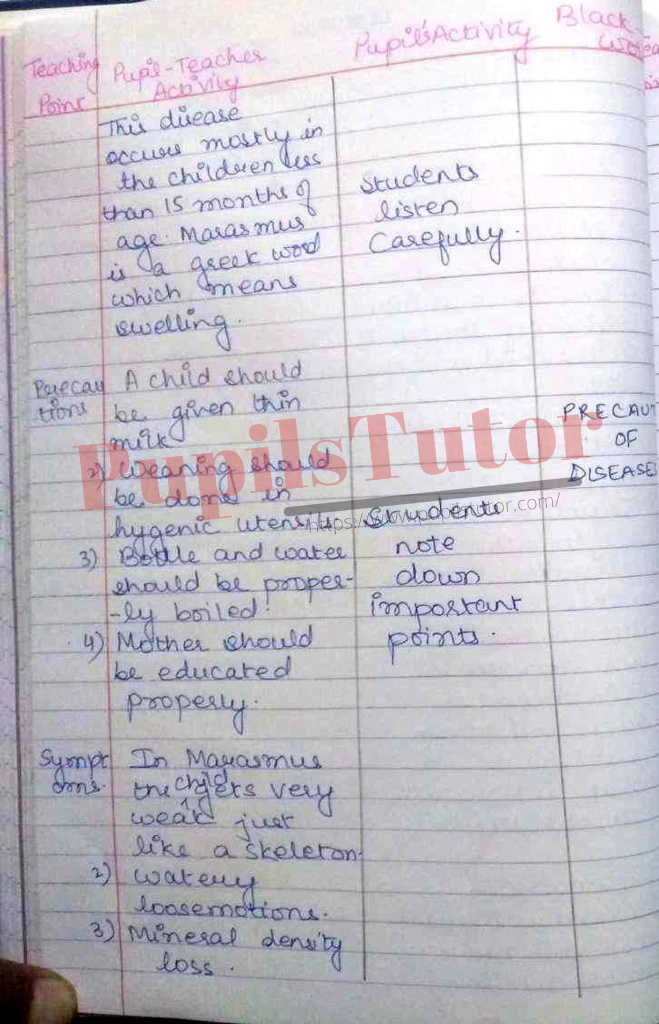 Teaching Point
Pupil-Teacher Activity
Pupil's Activity
Black
This disease
occurs mostly in
the children less
than 15 months of
age. Marasmus
is a greek word
which means
swelling.
Students
listen
Carefully.
Precau
tions
A child should
be given thin
milk
2) Weaning should
be done in
hygenic utensils
3) Bottle and water
should be proper-
-ly boiled.
4) Mother should
be educated
properly.
Students
note
down
important
points.
PRECAUT
OF
DISEASE
PupilsTutor
Sympt
oms.
In Marasmus
the child gets very
weak just
like a skeleton.
2) watery
loosemotions.
3) Mineral density
loss.